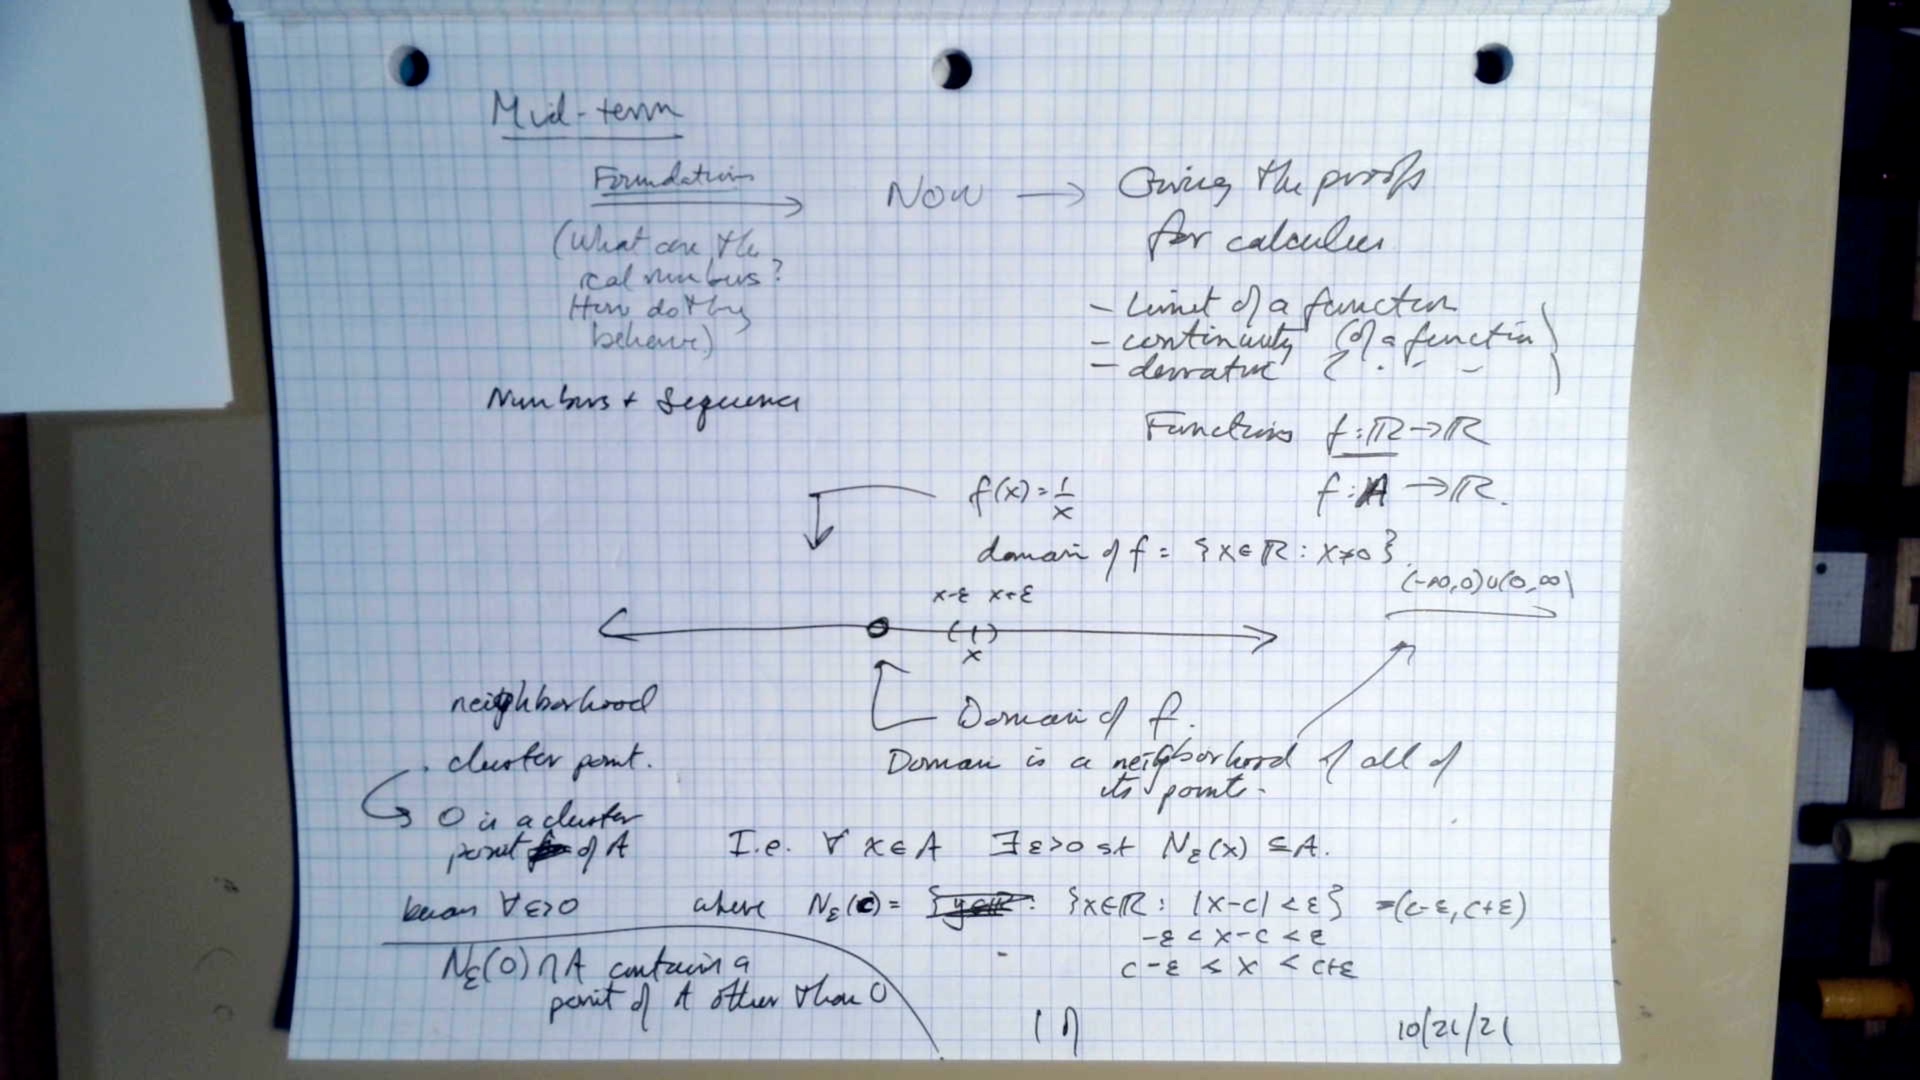 Mid-term
Foundations
NOW → Giving the proofs
for calculus
(What are the
real numbers?
How do they
behave)
Numbers + Sequences
- Limit of a function
- continuity (of a function
- derivative
Functions f: ℝ → ℝ
f: A → ℝ.
f(x) = 1/x
domain of f = {x ∈ ℝ : x ≠ 0}.
(-∞,0)∪(0,∞)
x-ε x+ε
( | )
x
Domain of f.
Domain is a neighborhood of all of
its points.
neighborhood
cluster point.
0 is a cluster
point of A
I.e. ∀ x ∈ A ∃ ε>0 st Nε(x) ⊆ A.
where Nε(c) = {x ∈ ℝ : |x-c| < ε} = (c-ε, c+ε)
-ε < x-c < ε
c-ε < x < c+ε
∀ ε>0
Nε(0) ∩ A contains a
point of A other than 0
10/21/21